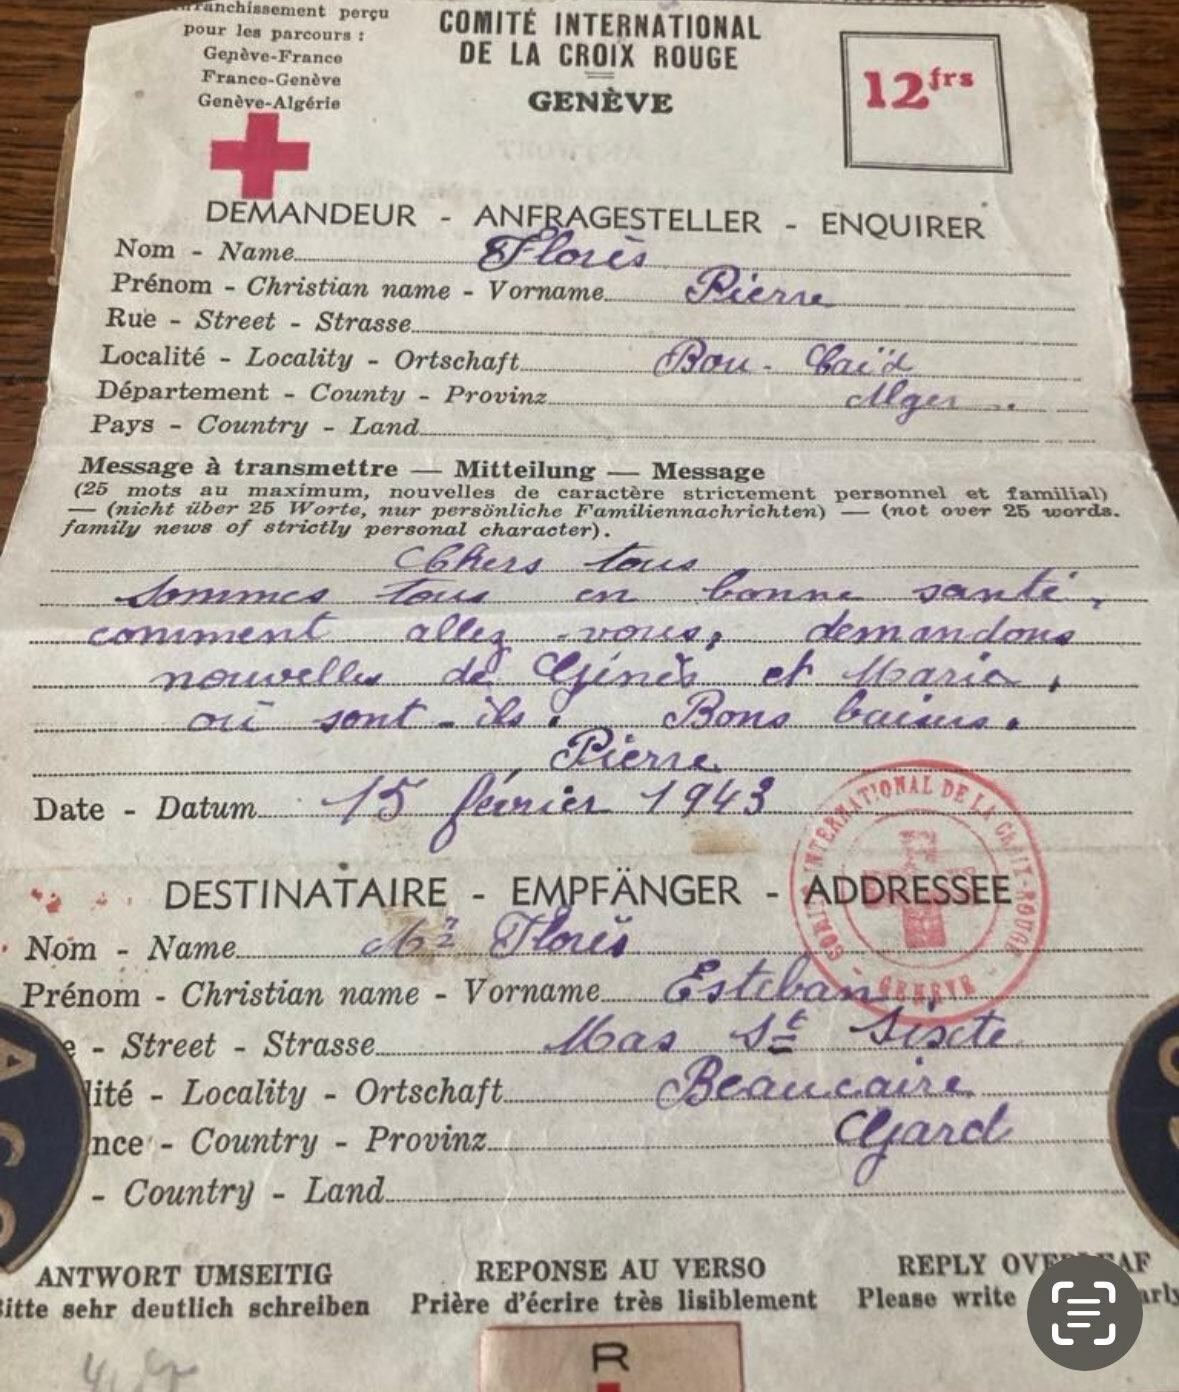 franchissement perçu
pour les parcours :
Genève-France
France-Genève
Genève-Algérie
COMITÉ INTERNATIONAL
DE LA CROIX ROUGE
GENÈVE
12 frs
DEMANDEUR - ANFRAGESTELLER - ENQUIRER
Nom - Name Florès
Prénom - Christian name - Vorname Pierre
Rue - Street - Strasse
Localité - Locality - Ortschaft Bou-Caïd
Département - County - Provinz Alger.
Pays - Country - Land
Message à transmettre — Mitteilung — Message
(25 mots au maximum, nouvelles de caractère strictement personnel et familial)
— (nicht über 25 Worte, nur persönliche Familiennachrichten) — (not over 25 words.
family news of strictly personal character).
Chers tous
sommes tous en bonne santé,
comment allez-vous, demandons
nouvelles de Ginès et Maria,
où sont-ils. Bons baisers.
Pierre
Date - Datum 15 février 1943
DESTINATAIRE - EMPFÄNGER - ADDRESSEE
Nom - Name Florès
Prénom - Christian name - Vorname Esteban
e - Street - Strasse Mas St Sixte
lité - Locality - Ortschaft Beaucaire
nce - Country - Provinz Gard
- Country - Land
INTERNATIONAL DE LA CROIX-ROUGE
- GENÈVE -
ANTWORT UMSEITIG
Bitte sehr deutlich schreiben
REPONSE AU VERSO
Prière d'écrire très lisiblement
REPLY
Please write
R